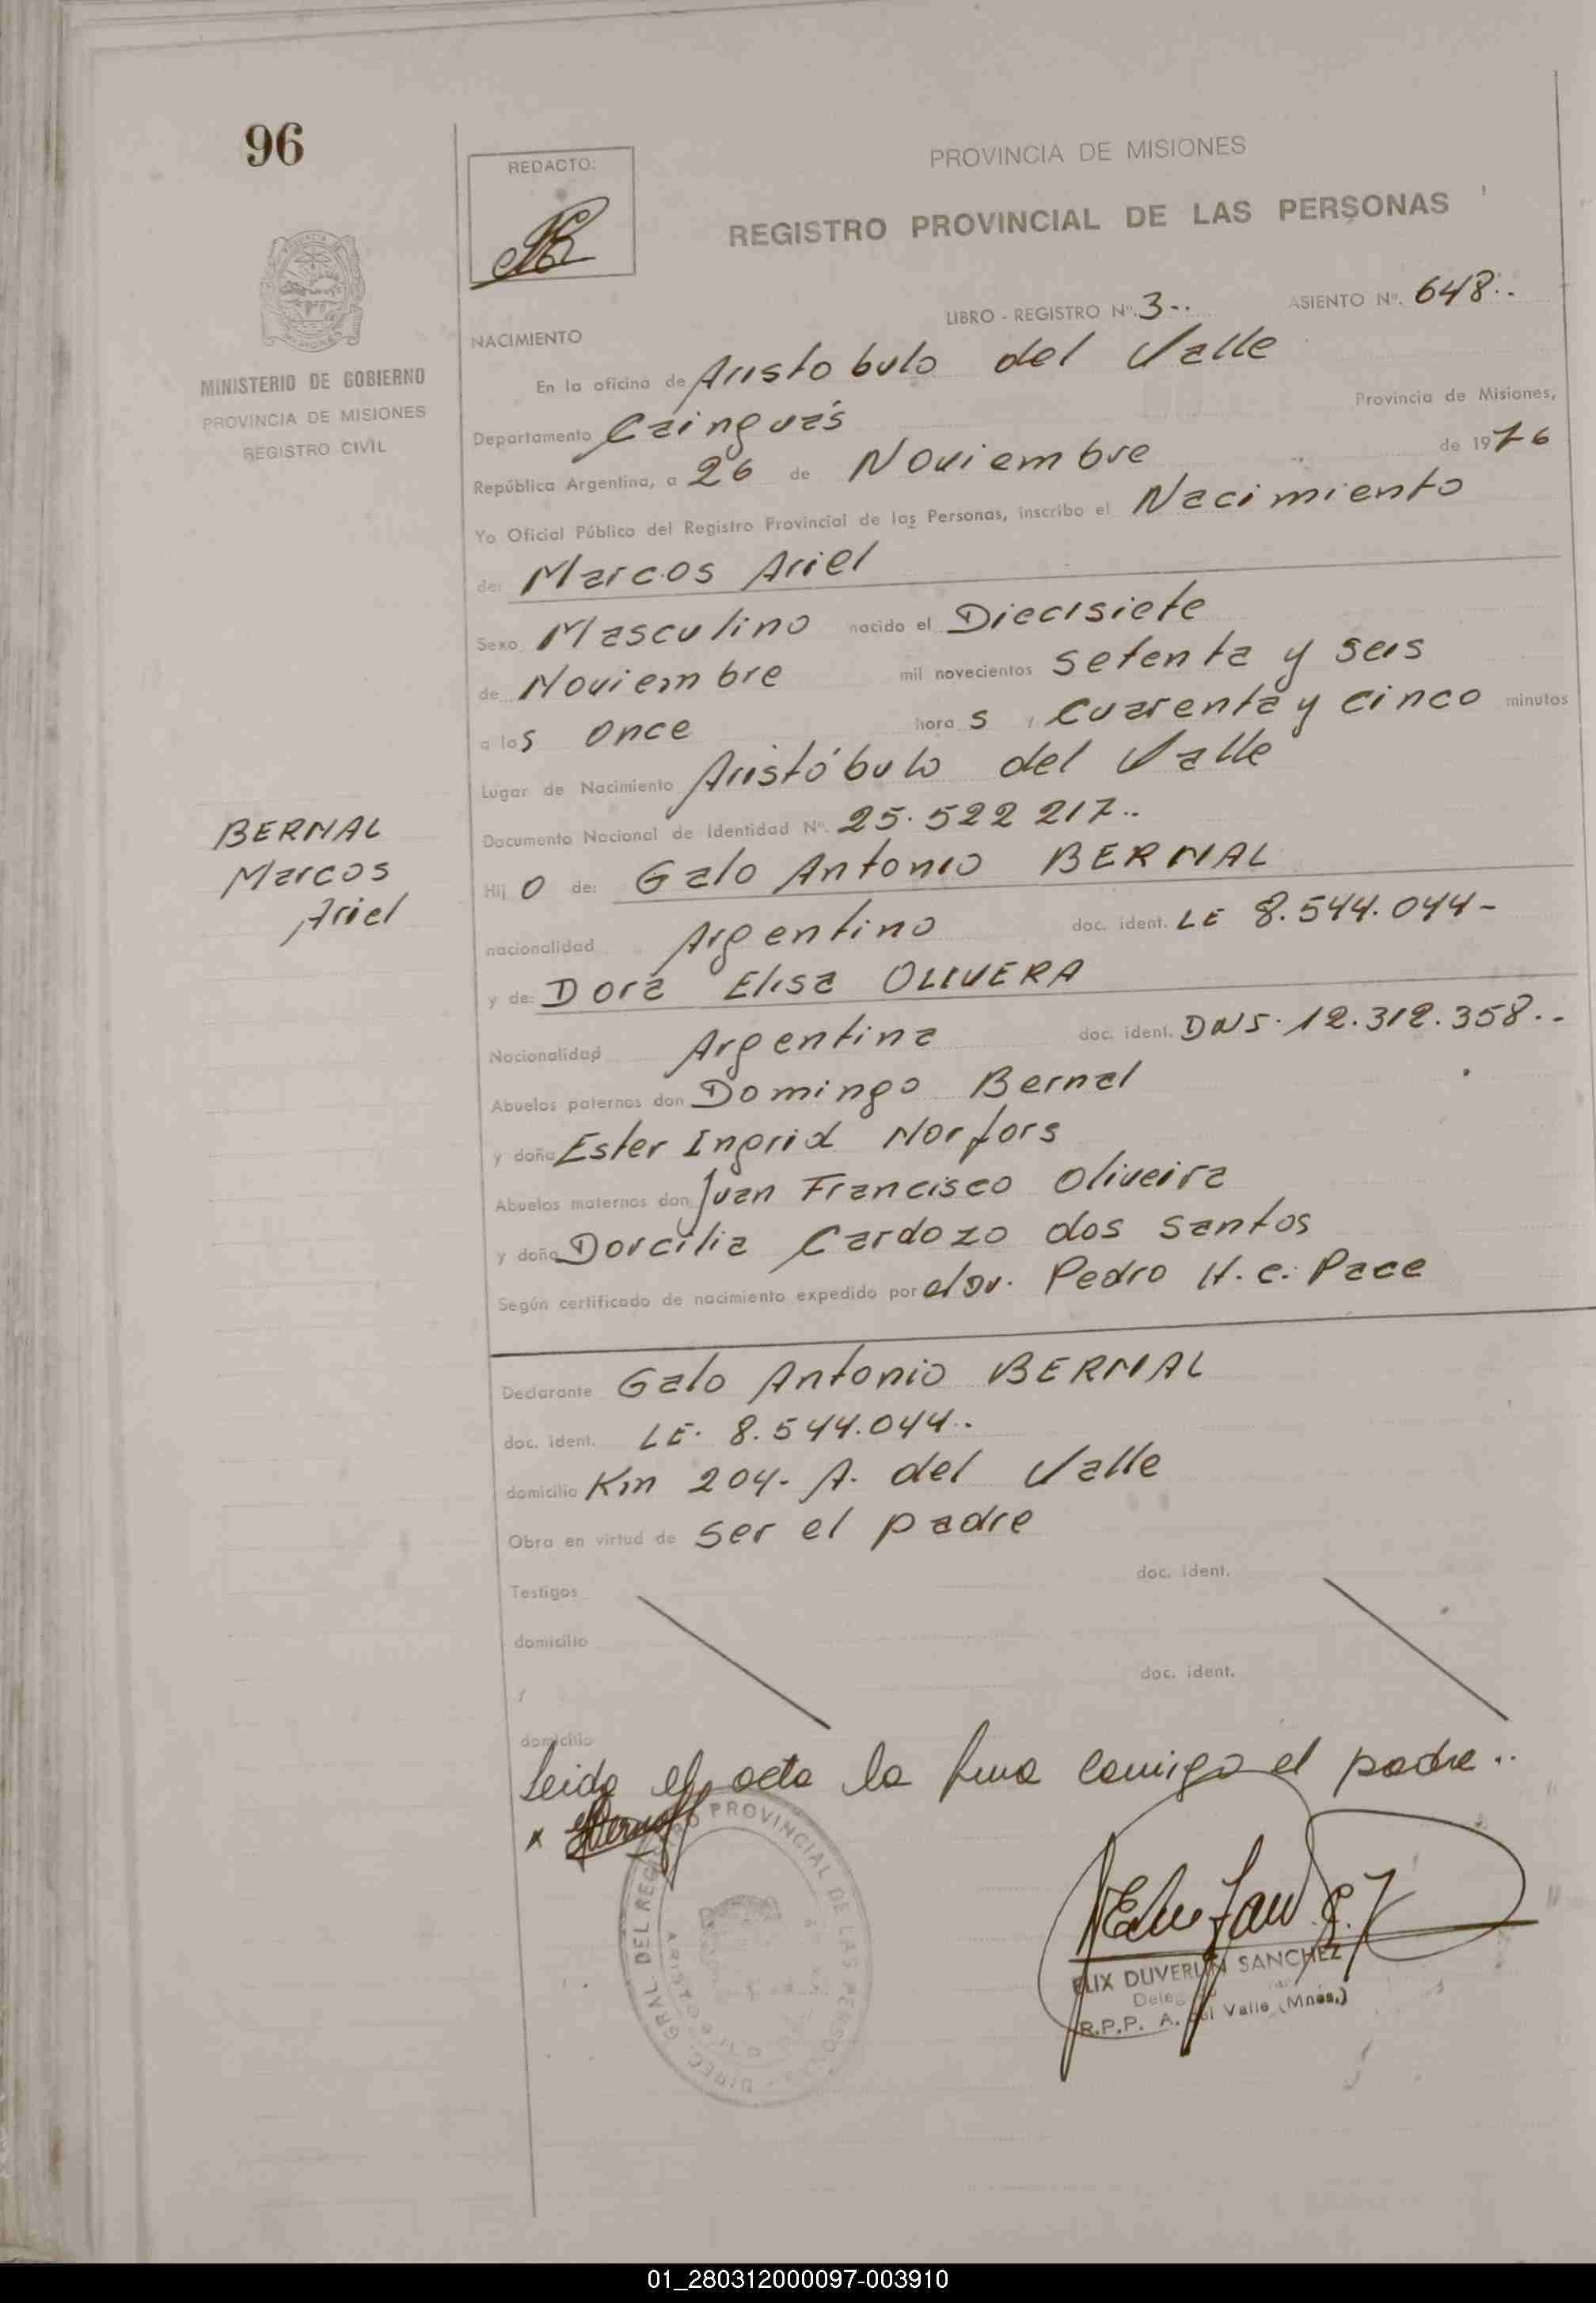 96
REDACTO:
PROVINCIA DE MISIONES
REGISTRO PROVINCIAL DE LAS PERSONAS
MINISTERIO DE GOBIERNO
PROVINCIA DE MISIONES
REGISTRO CIVIL
LIBRO - REGISTRO Nº. 3-.. ASIENTO Nº. 648..
NACIMIENTO
En la oficina de Aristobulo del Valle
Departamento Cainguás Provincia de Misiones,
República Argentina, a 26 de Noviembre de 1976
Yo Oficial Público del Registro Provincial de las Personas, inscribo el Nacimiento
de: Marcos Ariel
Sexo Masculino nacido el Diecisiete
de Noviembre mil novecientos setenta y seis
a las once horas y cuarenta y cinco minutos
Lugar de Nacimiento Aristóbulo del Valle
Documento Nacional de Identidad Nº. 25.522 217..
BERNAL
Marcos
Ariel
Hijo de: Galo Antonio BERNAL
nacionalidad Argentino doc. ident. LE 8.544.044-
y de: Dora Elisa OLIVERA
Nacionalidad Argentina doc. ident. DNI. 12.312.358..
Abuelos paternos don Domingo Bernal
y doña Ester Ingrid Norfors
Abuelos maternos don Juan Francisco Oliveira
y doña Dorcilia Cardozo dos Santos
Según certificado de nacimiento expedido por el Dr. Pedro H. C. Pace
Declarante Galo Antonio BERNAL
doc. ident. LE. 8.544.044..
domicilio Km 204- A. del Valle
Obra en virtud de ser el padre
Testigos doc. ident.
domicilio
y doc. ident.
domicilio
Leida el acta la firma conmigo el padre..
x
DIREC. GRAL. DEL REGISTRO PROVINCIAL DE LAS PERSONAS
ELIX DUVERLIN SANCHEZ
Deleg
R.P.P. A. del Valle (Mnes.)
01_280312000097-003910